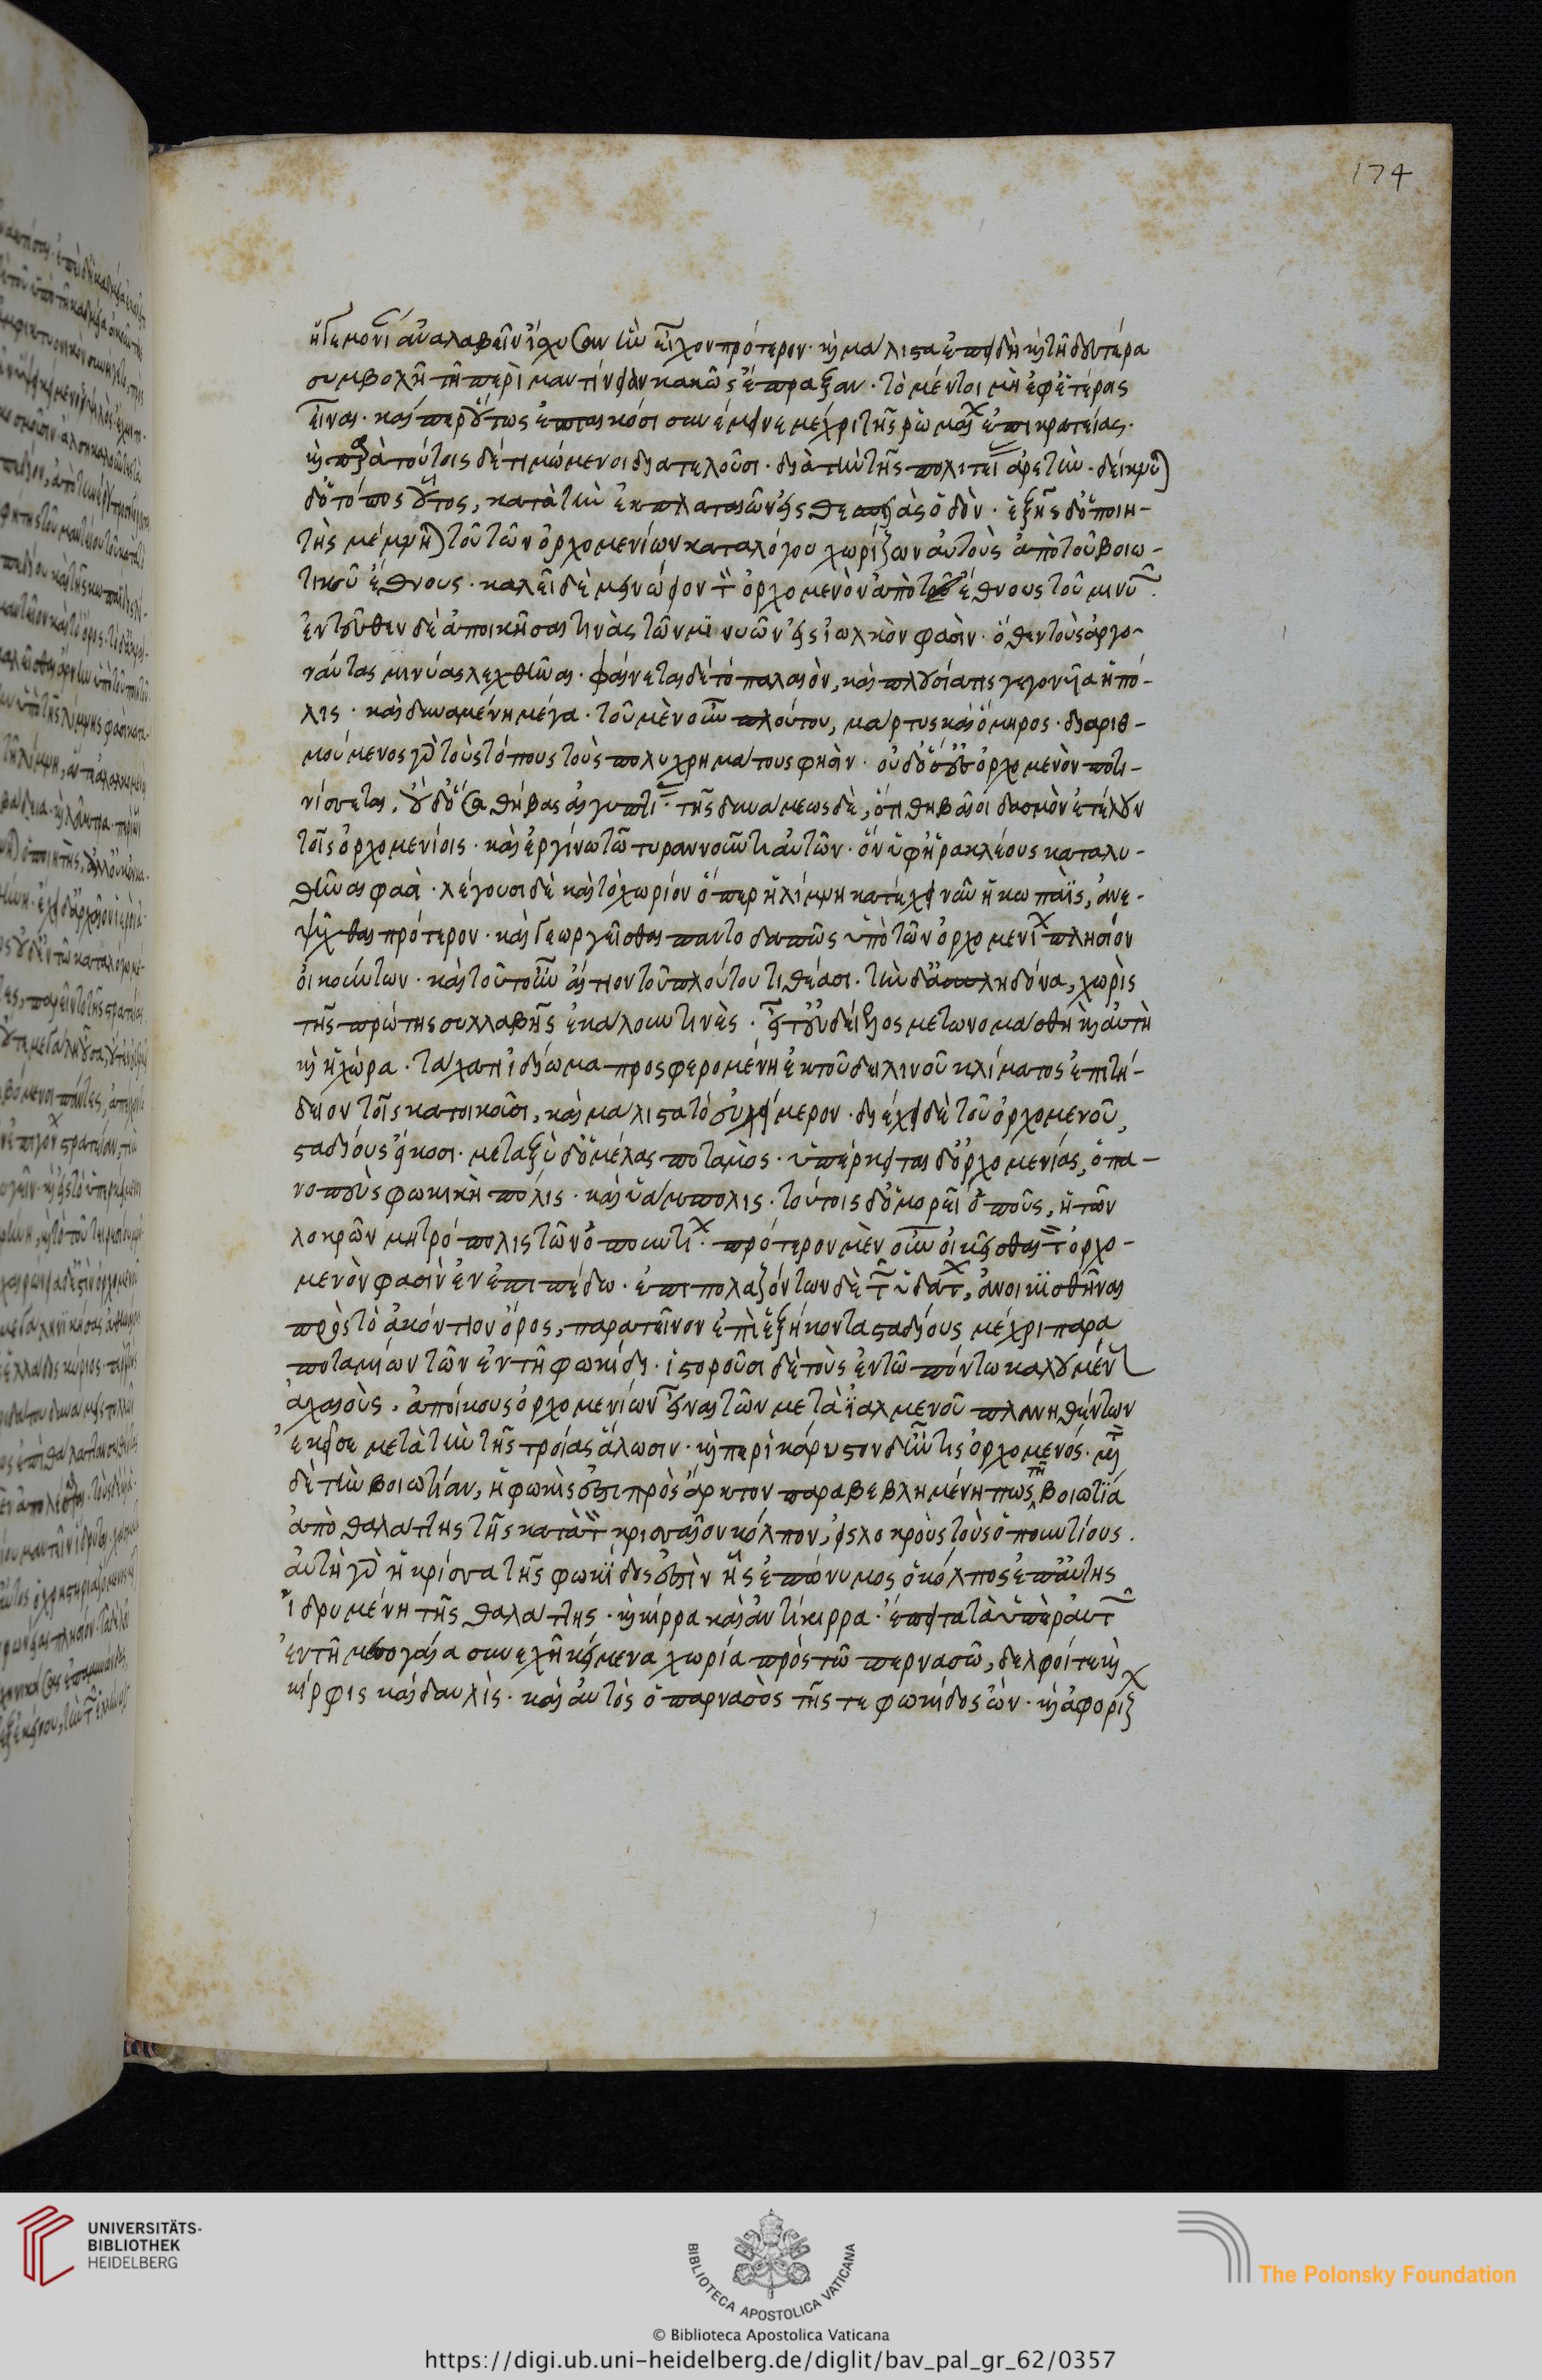 174
ἡγεμονίαν ἀναλαβεῖν ἴσχυσαν ἣν εἶχον πρότερον· καὶ μάλιστα ἐπειδὴ καὶ τῇ δευτέρα
συμβολῆ τῆ περὶ μαντίνειαν κακῶς ἔπραξαν· τὸ μέντοι μὴ ἐφ' ἑτέροις
εἶναι· καίπερ οὕτως ἐπταικόσι συνέμεινε μέχρι τῆς ῥωμαίων ἐπικρατείας·
καὶ παρὰ τούτοις δὲ τιμώμενοι διατελοῦσι· διὰ τὴν τῆς πολιτείας ἀρετήν· δείκνυται
δ' ὁ τόπος οὗτος, κατὰ τὴν ἐκ πλαταιῶν εἰς θεσπιὰς ὁδὸν· ἑξῆς δ' ὁ ποιη-
τὴς μέμνηται τοῦ τῶν ὀρχομενίων καταλόγου χωρίζων αὐτοὺς ἀπὸ τοῦ βοιω-
τικοῦ ἔθνους· καλεῖ δὲ μινύειον τὸν ὀρχομενὸν ἀπὸ τοῦ ἔθνους τοῦ μινυῶν·
ἐντεῦθεν δὲ ἀποικῆσαι τινὰς τῶν μινυῶν εἰς ἰωλκὸν φασὶν· ὅθεν τοὺς ἀργο-
ναύτας μινύας λεχθῆναι· φαίνεται δὲ τὸ παλαιὸν, καὶ πλουσία τις γεγονυῖα ἡ πό-
λις· καὶ δυναμένη μέγα· τοῦ μὲν οὖν πλούτου, μάρτυς καὶ ὅμηρος· διαριθ-
μούμενος γὰρ τοὺς τόπους τοὺς πολυχρημάτους φησὶν· οὐδ' ὅσ' ἐς ὀρχομενὸν ποτι-
νίσσεται, οὐδ' ὅσα θήβας αἰγυπτίας· τῆς δυνάμεως δὲ, ὅτι θηβαῖοι δασμὸν ἐτέλουν
τοῖς ὀρχομενίοις· καὶ ἐργίνω τῶ τυραννοῦντι αὐτῶν· ὃν ὑφ' ἡρακλέους καταλυ-
θῆναι φασὶ· λέγουσι δὲ καὶ τὸ χωρίον ὅπερ ἡ λίμνη κατέχει νῦν ἡ κωπαῒς, ἀνε-
ψύχθαι πρότερον· καὶ γεωργεῖσθαι παντοδαπῶς ὑπὸ τῶν ὀρχομενίων πλησίον
οἰκούντων· καὶ τοῦτ' οὖν αἴτιον τοῦ πλούτου τιθέασι· τὴν δ' ἀσπληδόνα, χωρὶς
τῆς πρώτης συλλαβῆς ἐκάλουν τινὲς· εἶτ' εὐδείελος μετωνομάσθη καὶ αὐτὴ
καὶ ἡ χώρα· τάχα τι ἰδίωμα προσφερομένη ἐκ τοῦ δειλινοῦ κλίματος ἐπιτή-
δειον τοῖς κατοικοῦσι, καὶ μάλιστα τὸ εὐχείμερον· διέχει δὲ τοῦ ὀρχομενοῦ,
σταδίους εἴκοσι· μεταξὺ δ' ὁ μέλας ποταμὸς· ὑπέρκειται δ' ὀρχομενίας, ὁ πα-
νοπεὺς φωκικὴ πόλις· καὶ ὑάμπολις· τούτοις δ' ὁμορεῖ ὀποῦς, ἡ τῶν
λοκρῶν μητρόπολις τῶν ὀπουντίων· πρότερον μὲν οὖν οἰκεῖσθαι τὸν ὀρχο-
μενὸν φασὶν ἐν ἐπιπέδω· ἐπιπολαζόντων δὲ τῶν ὑδάτων, ἀνοικισθῆναι
πρὸς τὸ ἀκόντιον ὄρος, παρατεῖνον ἐπὶ ἑξήκοντα σταδίους μέχρι παρα
ποταμίων τῶν ἐν τῆ φωκίδι· ἱστοροῦσι δὲ τοὺς ἐν τῶ πόντω καλουμένους
ἀχαιοὺς· ἀποίκους ὀρχομενίων εἶναι τῶν μετὰ ἰαλμενοῦ πλανηθέντων
ἐκεῖσε μετὰ τὴν τῆς τροίας ἅλωσιν· καὶ περὶ κάρυστον δ' ἦν τις ὀρχομενός· μετὰ
δὲ τὴν βοιωτίαν, ἡ φωκὶς ἐστι πρὸς ἄρκτον παραβεβλημένη πως τῆ βοιωτία
ἀπὸ θαλάττης τῆς κατὰ τὸν κρισσαῖον κόλπον, εἰς λοκροὺς τοὺς ὀπουντίους.
αὐτὴ γὰρ ἡ κρίσσα τῆς φωκίδος ἐστὶν ἧς ἐπώνυμος ὁ κόλπος ἐπ' αὐτῆς
ἱδρυμένη τῆς θαλάττης· καὶ κίρρα καὶ ἀντίκιρρα· ἔπειτα τὰ ὑπὲρ αὐτῶν
ἐν τῆ μεσογαία συνεχῆ κείμενα χωρία πρὸς τῶ περνασῶ, δελφοί τε καὶ
κίρφις καὶ δαυλὶς· καὶ αὐτὸς ὁ παρνασὸς τῆς τε φωκίδος ὢν· καὶ ἀφορίζων
UNIVERSITÄTS-
BIBLIOTHEK
HEIDELBERG
BIBLIOTECA APOSTOLICA VATICANA
The Polonsky Foundation
© Biblioteca Apostolica Vaticana
https://digi.ub.uni-heidelberg.de/diglit/bav_pal_gr_62/0357